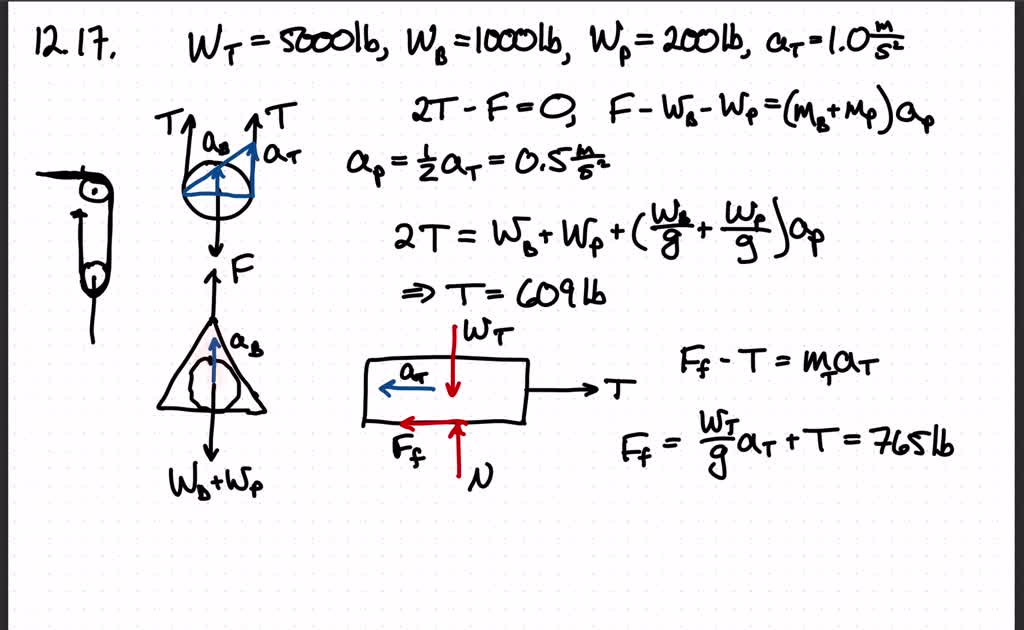 12.17. W_T = 5000lb, W_B = 1000lb, W_P = 200lb, a_T = 1.0 m/s²
2T - F = 0, F - W_B - W_P = (m_B + m_P) a_p
T T
a_B a_T
a_p = 1/2 a_T = 0.5 m/s²
2T = W_B + W_P + (W_B/g + W_P/g) a_p
F
⇒ T = 609 lb
W_T
a_B
F_f - T = m_T a_T
a_T
T
F_f = W_T/g a_T + T = 765 lb
F_f
N
W_B + W_P